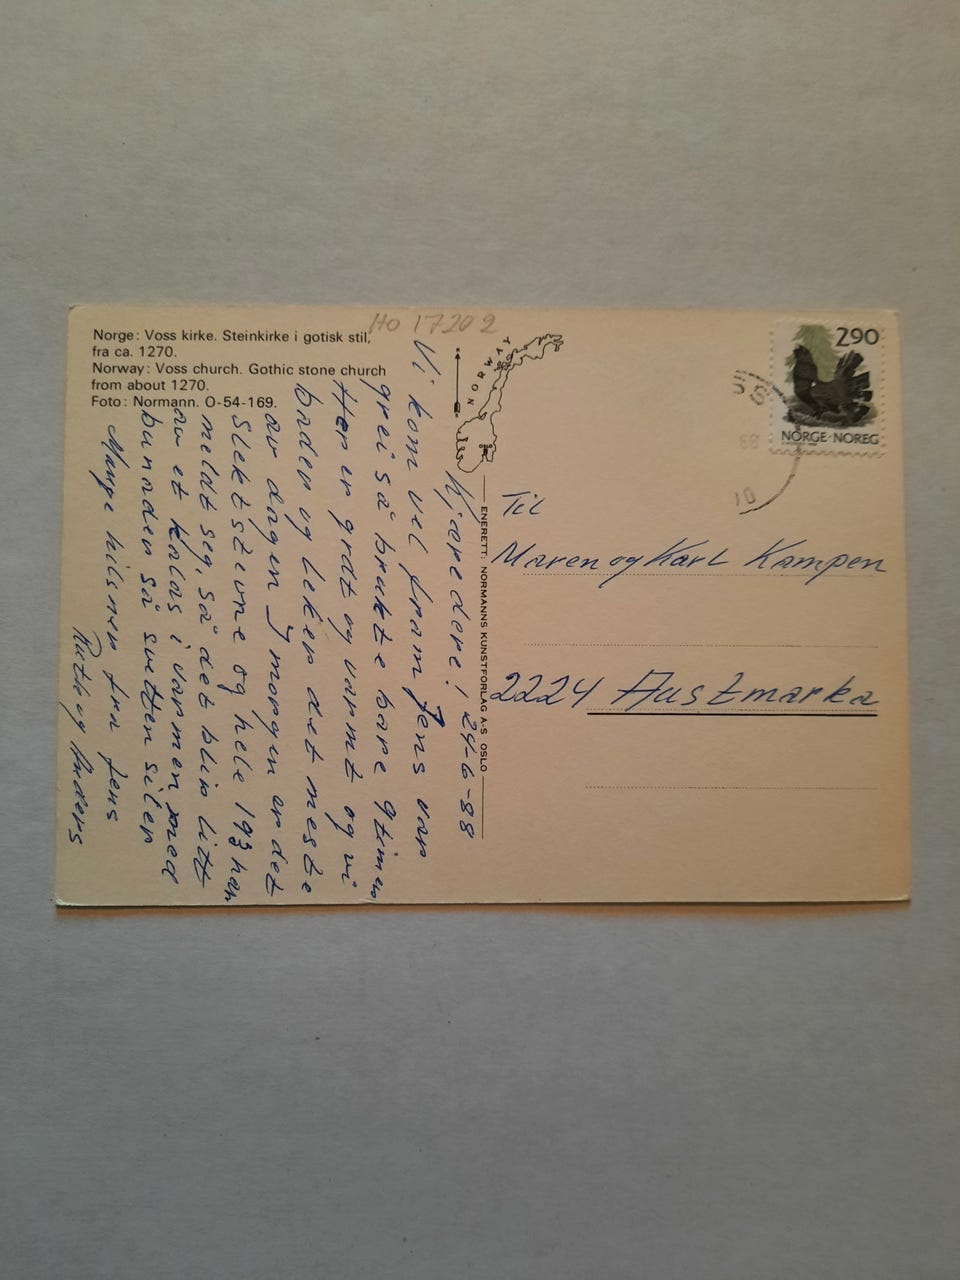 Norge: Voss kirke. Steinkirke i gotisk stil,
fra ca. 1270.
Norway: Voss church. Gothic stone church
from about 1270.
Foto: Normann. O-54-169.
HO 17202
NORWAY
OSLO
ENERETT: NORMANNS KUNSTFORLAG A-S OSLO
Kjære dere! 24-6-88
Vi kom vel fram Jens var
grei så brukte bare 9 timer
Her er godt og varmt og vi
bader og leker det meste
av dagen I morgen er det
Slektstevne og hele 193 har
meldt seg, så det blir litt
av et kalas i varmen med
bunader så svetten siler
Mange hilsner fra Jens
Ruth og Anders
290
NORGE·NOREG
SS
88
10
Til
Maren og Karl Kampen
2224 Austmarka